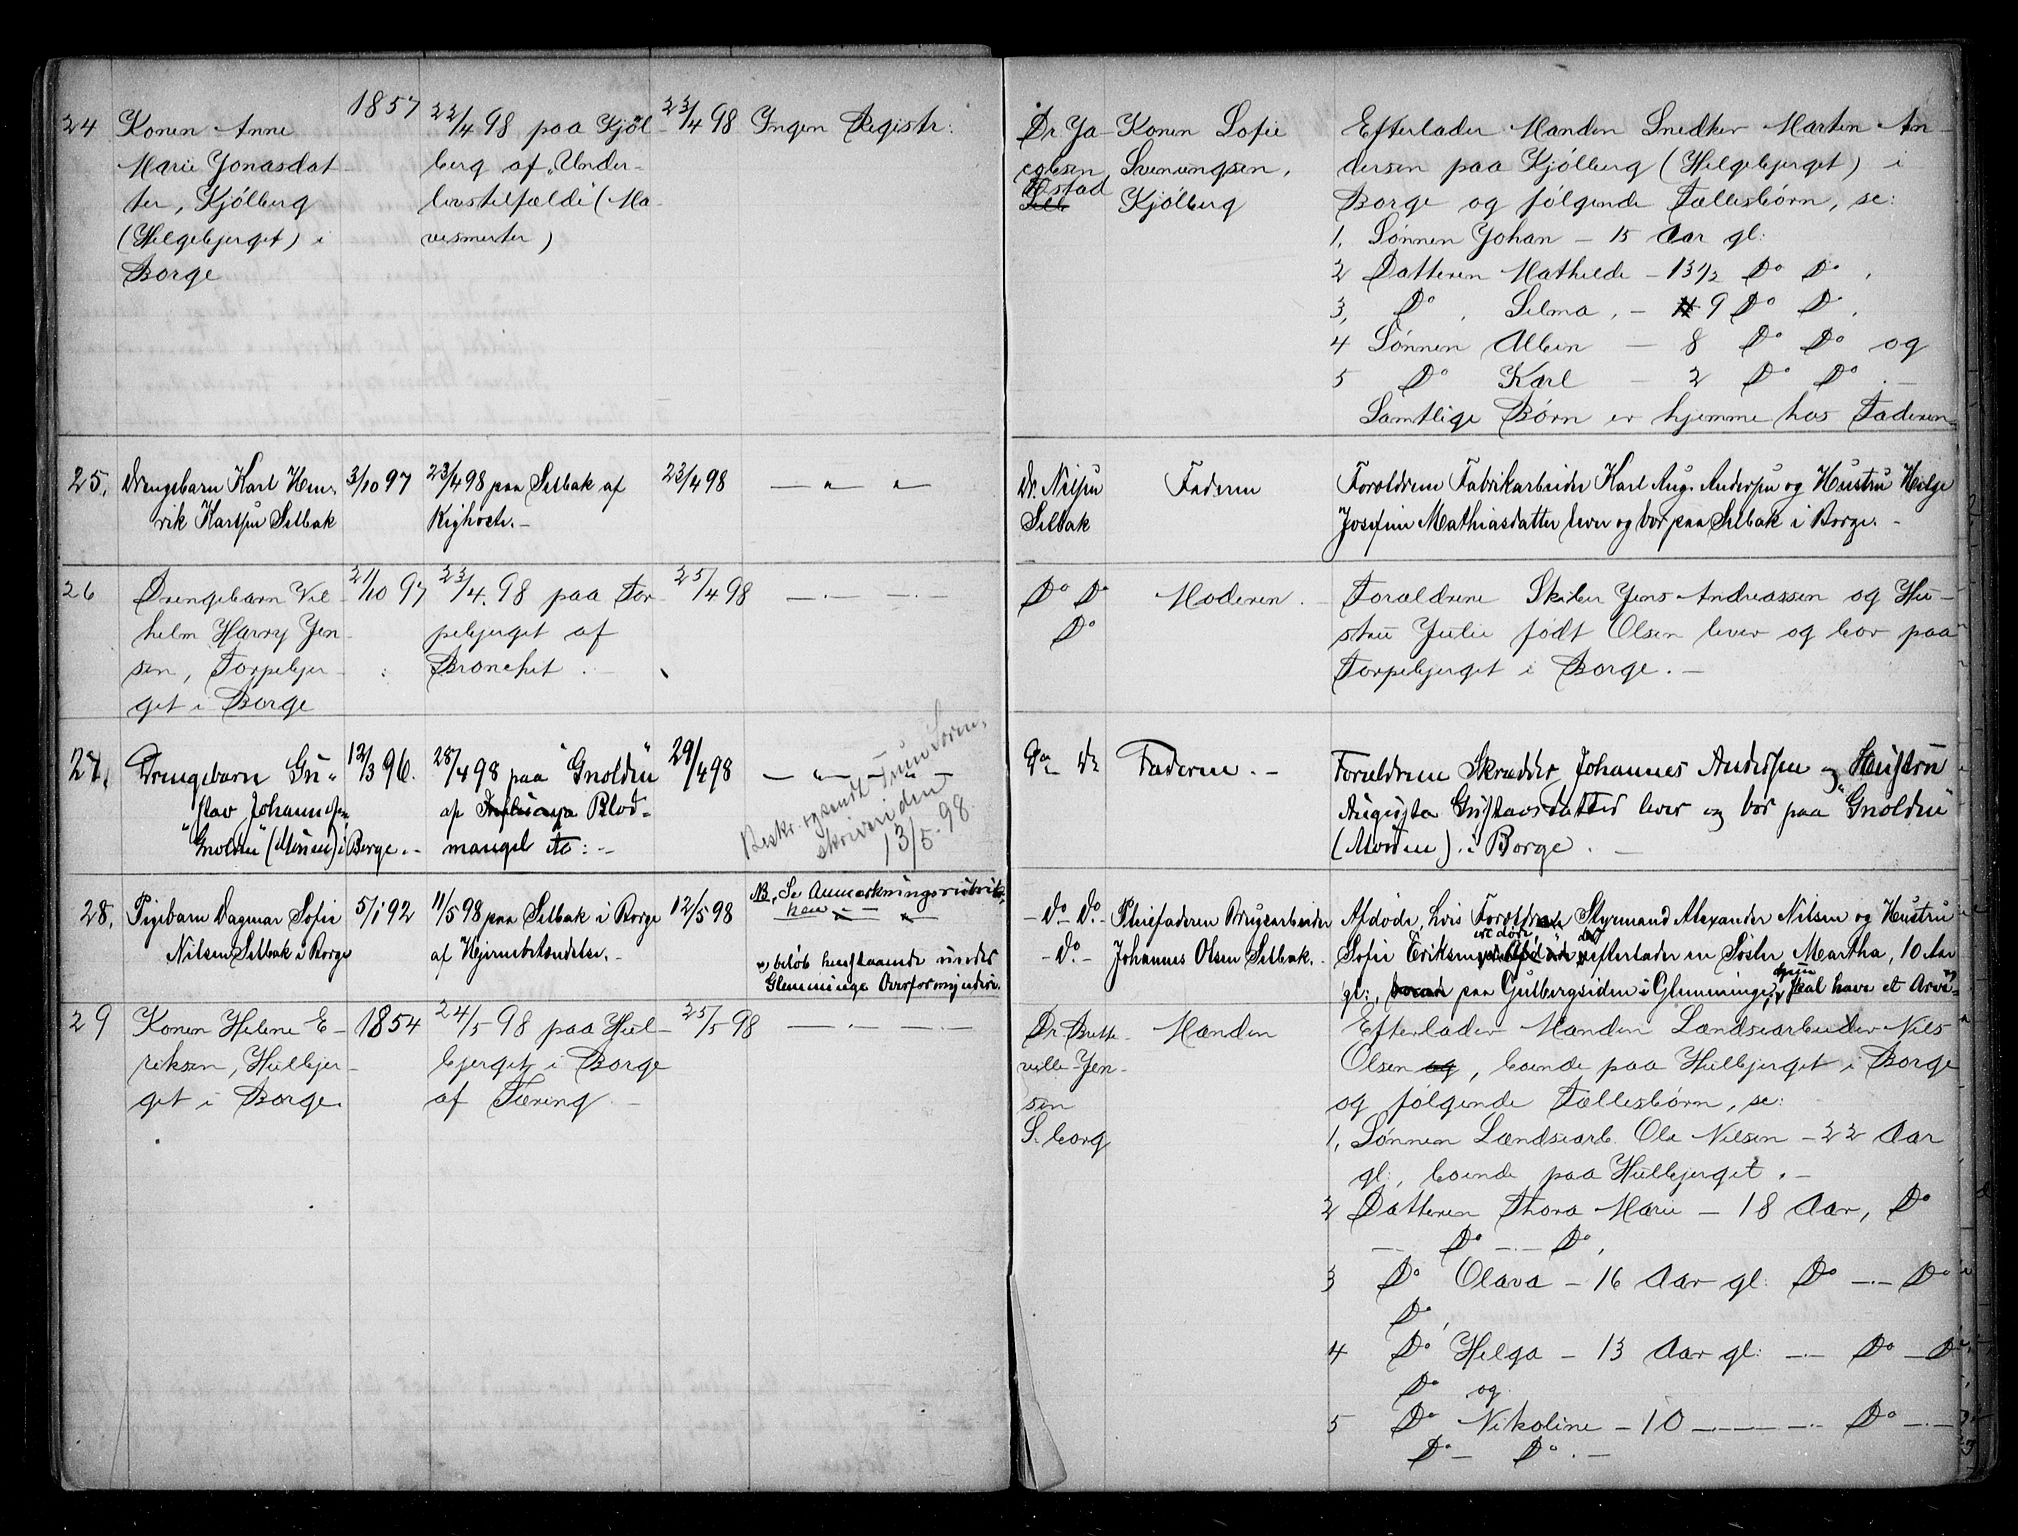 24 Konen Anne
Marie Jonasdat-
ter, Kjölberg
(Helgebjerget) i
Borge
1857
22/4 98 paa Kjöl-
berg af „Under-
livstilfælde“ (Ma-
vesmerter)
23/4 98
Ingen Registr:
Dr. Ja-
cobsen,
F.stad
Konen Sofie
Svenungsen,
Kjölberg
Efterlader Manden Snedker Martin An-
dersen paa Kjölberg (Helgebjerget) i
Borge og følgende Fællesbørn, se:
1, Sønnen Johan – 15 Aar gl:
2 Datteren Mathilde – 13 1/2 Do Do,
3, Do, Selma, – 9 Do Do,
4 Sønnen Albin – 8 Do Do og
5 Do Karl – 2 Do Do. –
Samtlige Børn er hjemme hos Faderen
25. Drengebarn Karl Hen-
rik Karlsen Selbak
3/10 97
23/4 98 paa Selbak af
Kighoste. –
23/4 98
— „ — „ —
Dr. Nilsen
Selbak
Faderen
Forældrene Fabrikarbeider Karl Aug. Andersen og Hustru Helge
Josefine Mathiasdatter lever og bor paa Selbak i Borge. –
26 Drengebarn Vil-
helm Harry Jen-
sen, Torpebjer-
get i Borge
21/10 97
23/4. 98 paa Tor-
pebjerget af
Bronchit. –
25/4 98
—.— —.—
Do Do
Do
Moderen.
Forældrene Skiber Jens Andreassen og Hu-
stru Julie født Olsen lever og bor paa
Torpebjerget i Borge. –
27. Drengebarn Gu-
stav Johannesen
„Gnolden“ (Moren) i Borge. –
12/3 96.
28/4 98 paa „Gnolden“
af Blod-
mangel etc: –
29/4 98
— „ — „ —
Beskr. og sendt Tune Soren-
skriveriden
13/5. 98
Do Do
Faderen. –
Forældrene Skrædder Johannes Andersen og Hustru
Augusta Gustavsdatter lever og bor paa „Gnolden“
(Morden) i Borge. –
28. Pigebarn Dagmar Sofie
Nilsen Selbak i Borge
5/1 92
11/5 98 paa Selbak i Borge
af Hjernebetændelse. –
12/5 98
NB, Se Anmærkningsrubrik-
ken – „ – „ –
„) beløb henstaaende under
Glemminge Overformynderi.
– Do – Do. –
– Do. –
Pleiefaderen Brugsarbeider
Johannes Olsen Selbak. –
Afdøde, hvis Forældre Styrmand Alexander Nilsen og Hustru
Sofie Eriksen er døde, efterlader en Søster Martha, 10 Aar
gl:, paa Gulbergsiden i Glemminge, skal have et Arve-
29 Konen Helene E-
riksen, Hulbjer-
get i Borge.
1854
24/5 98 paa Hul-
bjerget i Borge
af Tæring. –
25/5 98
—.— —.—
Dr. Brette-
ville-Jen-
sen
S.borg
Manden
Efterlader Manden Landsearbeider Nils
Olsen og, boende paa Hulbjerget i Borge
og følgende Fællesbørn, se:
1, Sønnen Landsearb. Ole Nilsen – 22 Aar
gl:, boende paa Hulbjerget. –
2 Datteren Thora Marie – 18 Aar, Do
— Do —.— Do,
3 Do Olava – 16 Aar gl: Do —.— Do
Do,
4 Do Helga – 13 Aar gl: —.— Do — Do
Do og
5 Do Nikoline – 10 —.—.—.— Do —.—
Do – Do. –